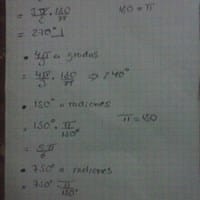 = 3π/2 · 180/π   180 = π
= 270°
• 4π/3 a grados
= 4π/3 · 180/π ⇒ 240°
• 150° a radianes
= 150° · π/180°   π = 180
= 5π/6
• 750° a radianes
= 750° · π/180°